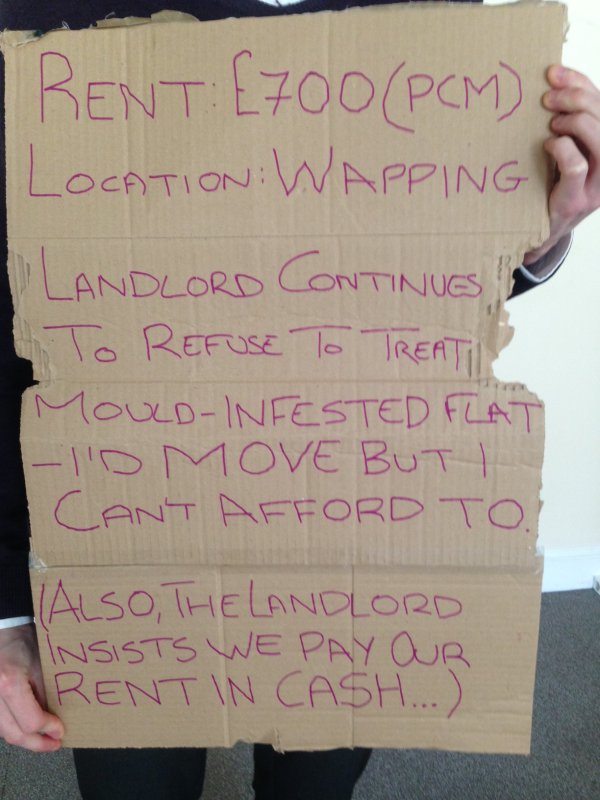 RENT: £700 (PCM)
LOCATION: WAPPING
LANDLORD CONTINUES
TO REFUSE TO TREAT
MOULD-INFESTED FLAT
-I'D MOVE BUT I
CAN'T AFFORD TO.
(ALSO, THE LANDLORD
INSISTS WE PAY OUR
RENT IN CASH...)